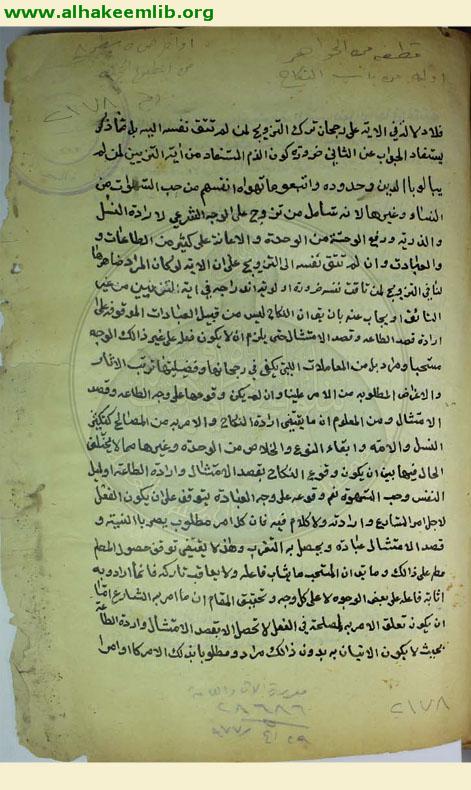 www.alhakeemlib.org
قطعه من الجواهر
اوله من باب النكاح
٢١٧٨
فلا دلالة في الاية على رجحان ترك التزويج لمن لم تتق نفسه اليه بل مما ذكر
يستفاد الجواب عن الثاني ضرورة كون الذم المستفاد من آية التزيين لمن لم
يبالوا بالدين وحدوده واتبعوا ما تهواه انفسهم من حب الشهوات من
النساء وغيرها لا نه شامل من تزوج على الوجه الشرعي لارادة النسل
والذرية ورفع الوحشة من الوحدة والاعانة على كثير من الطاعات و
والعبادت وان لم تتق نفسه الى التزويج على ان الاية لو كان المراد ظاهرها
لنافى التزويج لمن تاقت نفسه ضرورة اولوية اندراجه في اية التزيين من غير
التائق ويجاب عنه بان يقال ان النكاح ليس من قبيل العبادات الموقوفة على
ارادة قصد الطاعه وقصد الامتثال حتى يلزم ان لا يكون فعله على غير ذالك الوجه
مستحبا ومراد بل من المعاملات اللتي يكفي في رجحانها وفضيلتها ترتب الاثار
والاغراض المطلوبه من الامر علينا وان لم يكن وقوعها على وجه الطاعه وقصد
الامتثال ومن المعلوم ان ما يقتضي ارادة النكاح والامر به من المصالح كتكثير
النسل والامه وابقاء النوع والخلاص من الوحدة وغيرها مما لا يختلف
الحال فيها بين ان يكون وقوع النكاح بقصد الامتثال وارادة الطاعة اولميل
النفس وحب الشهوة نعم وقوعه على وجه العبادة يتوقف على ان يكون الفعل
لاجل امر الشارع وارادته ولا كلام فيه فان كل امر مطلوب يصير بالنية و
قصد الامتثال عبادة ويحصل به التقرب وهذا لا يقتضي توقف حصول المط
مط على ذالك وما يق ان المستحب ما يثاب فاعله ولا يعاقب تاركه فانما ارادو به
اثابة فاعله على بعض الوجوه لا على كل وجه وتحقيق المقام ان ما امر به الشارع امّا
ان يكون تعلق الامر به لمصلحة في الفعل لا تحصل الا بقصد الامتثال وارادة الطاعة
بحيث لا يكون الاتيان به بدون ذالك مراد ومطلوبا بذلك الامر كاوامر
٢١٧٨
٢٨٦٨٦